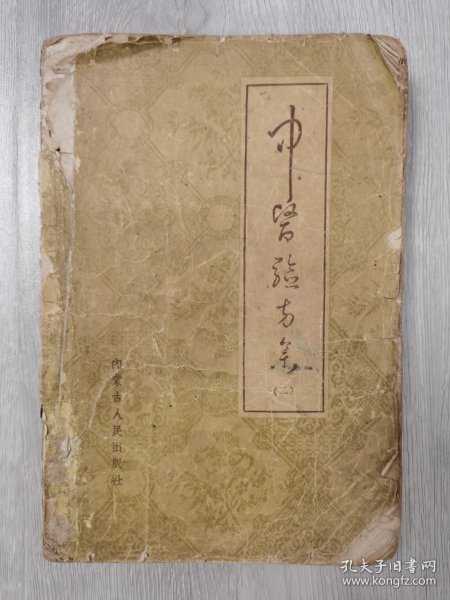 中醫验方集
(二)
内蒙古人民出版社
孔夫子旧书网
www.kongfz.com